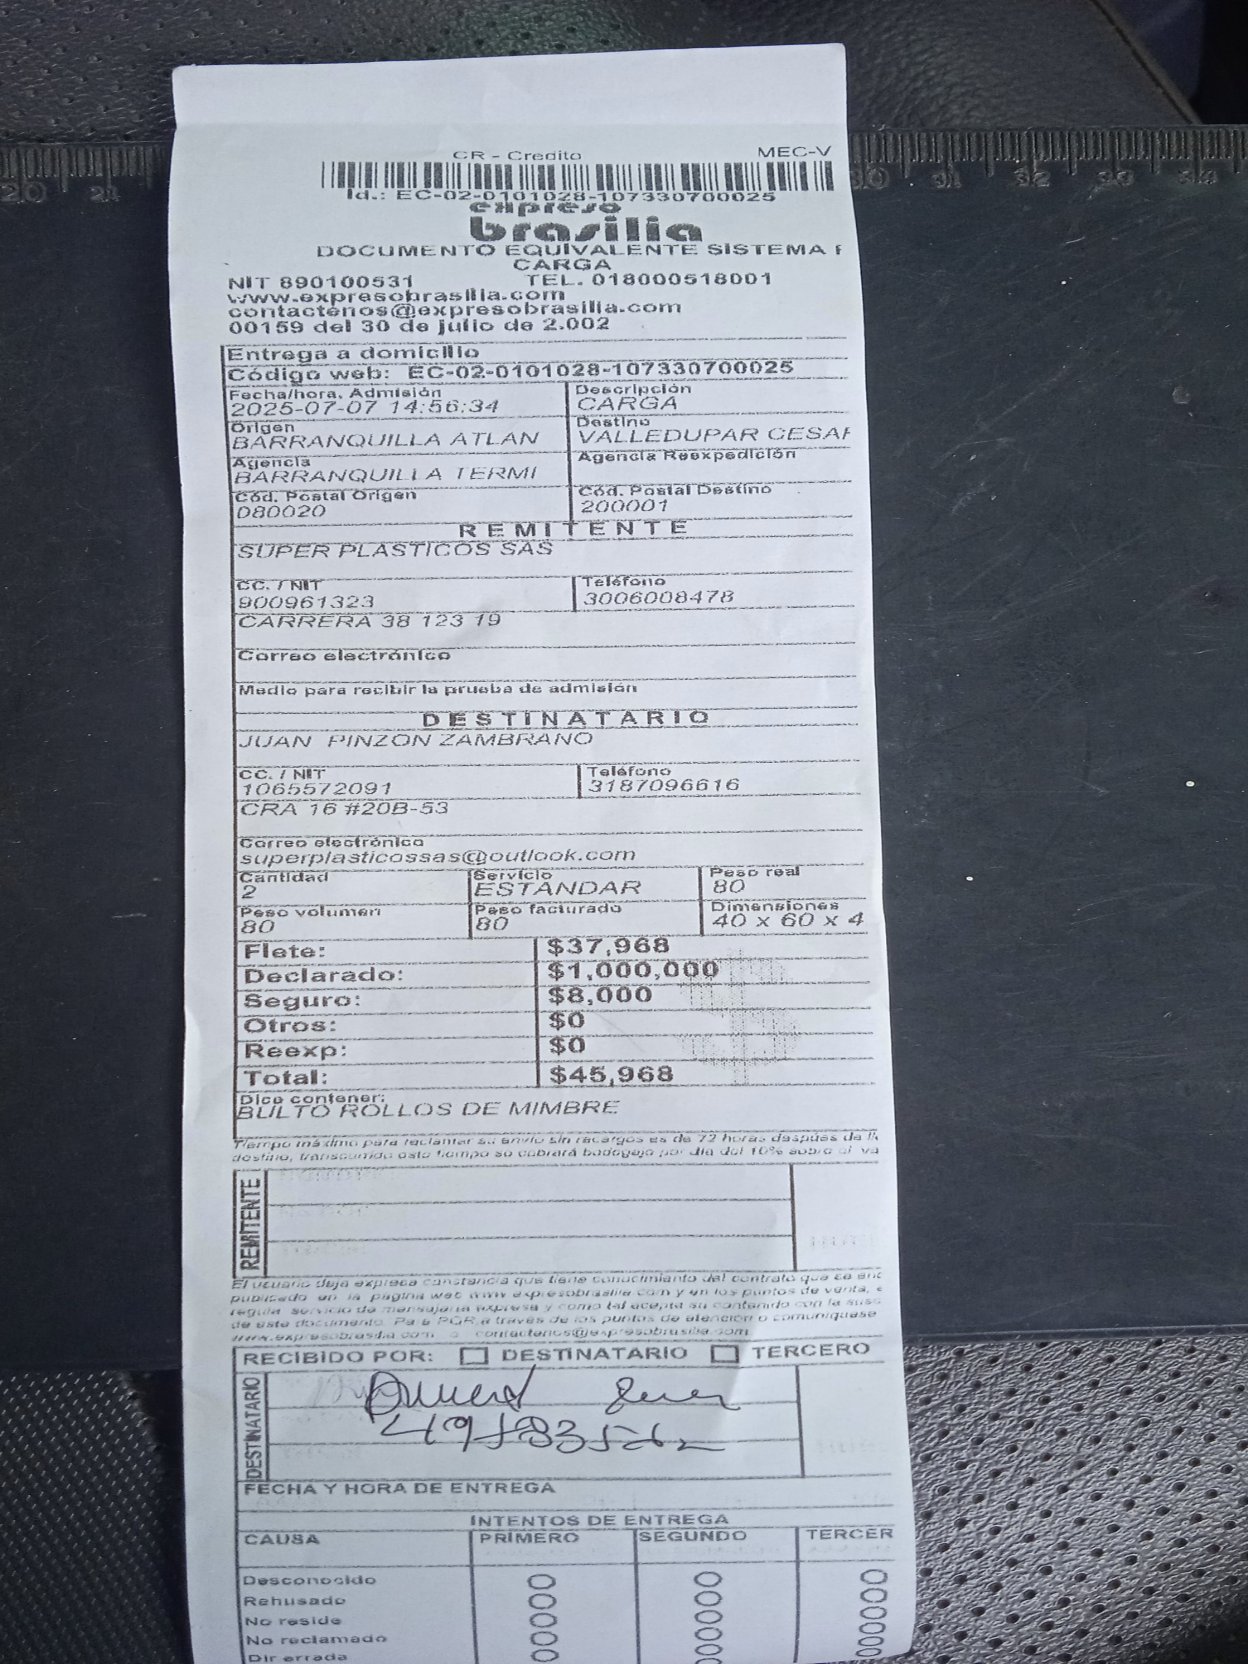 CR - Credito MEC-V
Id.: EC-02-0101028-107330700025
expreso
brasilia
DOCUMENTO EQUIVALENTE SISTEMA
CARGA
NIT 890100531 TEL. 018000518001
www.expresobrasilia.com
contactenos@expresobrasilia.com
00159 del 30 de julio de 2.002
Entrega a domicilio
Código web: EC-02-0101028-107330700025
Fecha/hora. Admisión Descripción
2025-07-07 14:56:34 CARGA
Origen Destino
BARRANQUILLA ATLAN VALLEDUPAR CESAR
Agencia Agencia Reexpedición
BARRANQUILLA TERMI
Cód. Postal Origen Cód. Postal Destino
080020 200001
REMITENTE
SUPER PLASTICOS SAS
CC. / NIT Teléfono
900961323 3006008478
CARRERA 38 123 19
Correo electrónico
Medio para recibir la prueba de admisión
DESTINATARIO
JUAN PINZON ZAMBRANO
CC. / NIT Teléfono
1065572091 3187096616
CRA 16 #20B-53
Correo electrónico
superplasticossas@outlook.com
Cantidad Servicio Peso real
2 ESTANDAR 80
Peso volumen Peso facturado Dimensiones
80 80 40 x 60 x 4
Flete: $37,968
Declarado: $1,000,000
Seguro: $8,000
Otros: $0
Reexp: $0
Total: $45,968
Dice contener:
BULTO ROLLOS DE MIMBRE
Tiempo máximo para reclamar su envío sin recargos es de 72 horas después de
destino, transcurrido este tiempo se cobrará bodegaje por día del 10% sobre el va
REMITENTE
El usuario deja expresa constancia que tiene conocimiento del contrato que se enc
publicado en la pagina web www.expresobrasilia.com y en los puntos de venta,
regula servicio de mensajería expresa y como tal acepta su contenido con la sus
de este documento. Para PQR a través de los puntos de atención o comuníquese
www.expresobrasilia.com o contactenos@expresobrasilia.com
RECIBIDO POR: DESTINATARIO TERCERO
DESTINATARIO
FECHA Y HORA DE ENTREGA
INTENTOS DE ENTREGA
CAUSA PRIMERO SEGUNDO TERCER
Desconocido
Rehusado
No reside
No reclamado
Dir errada